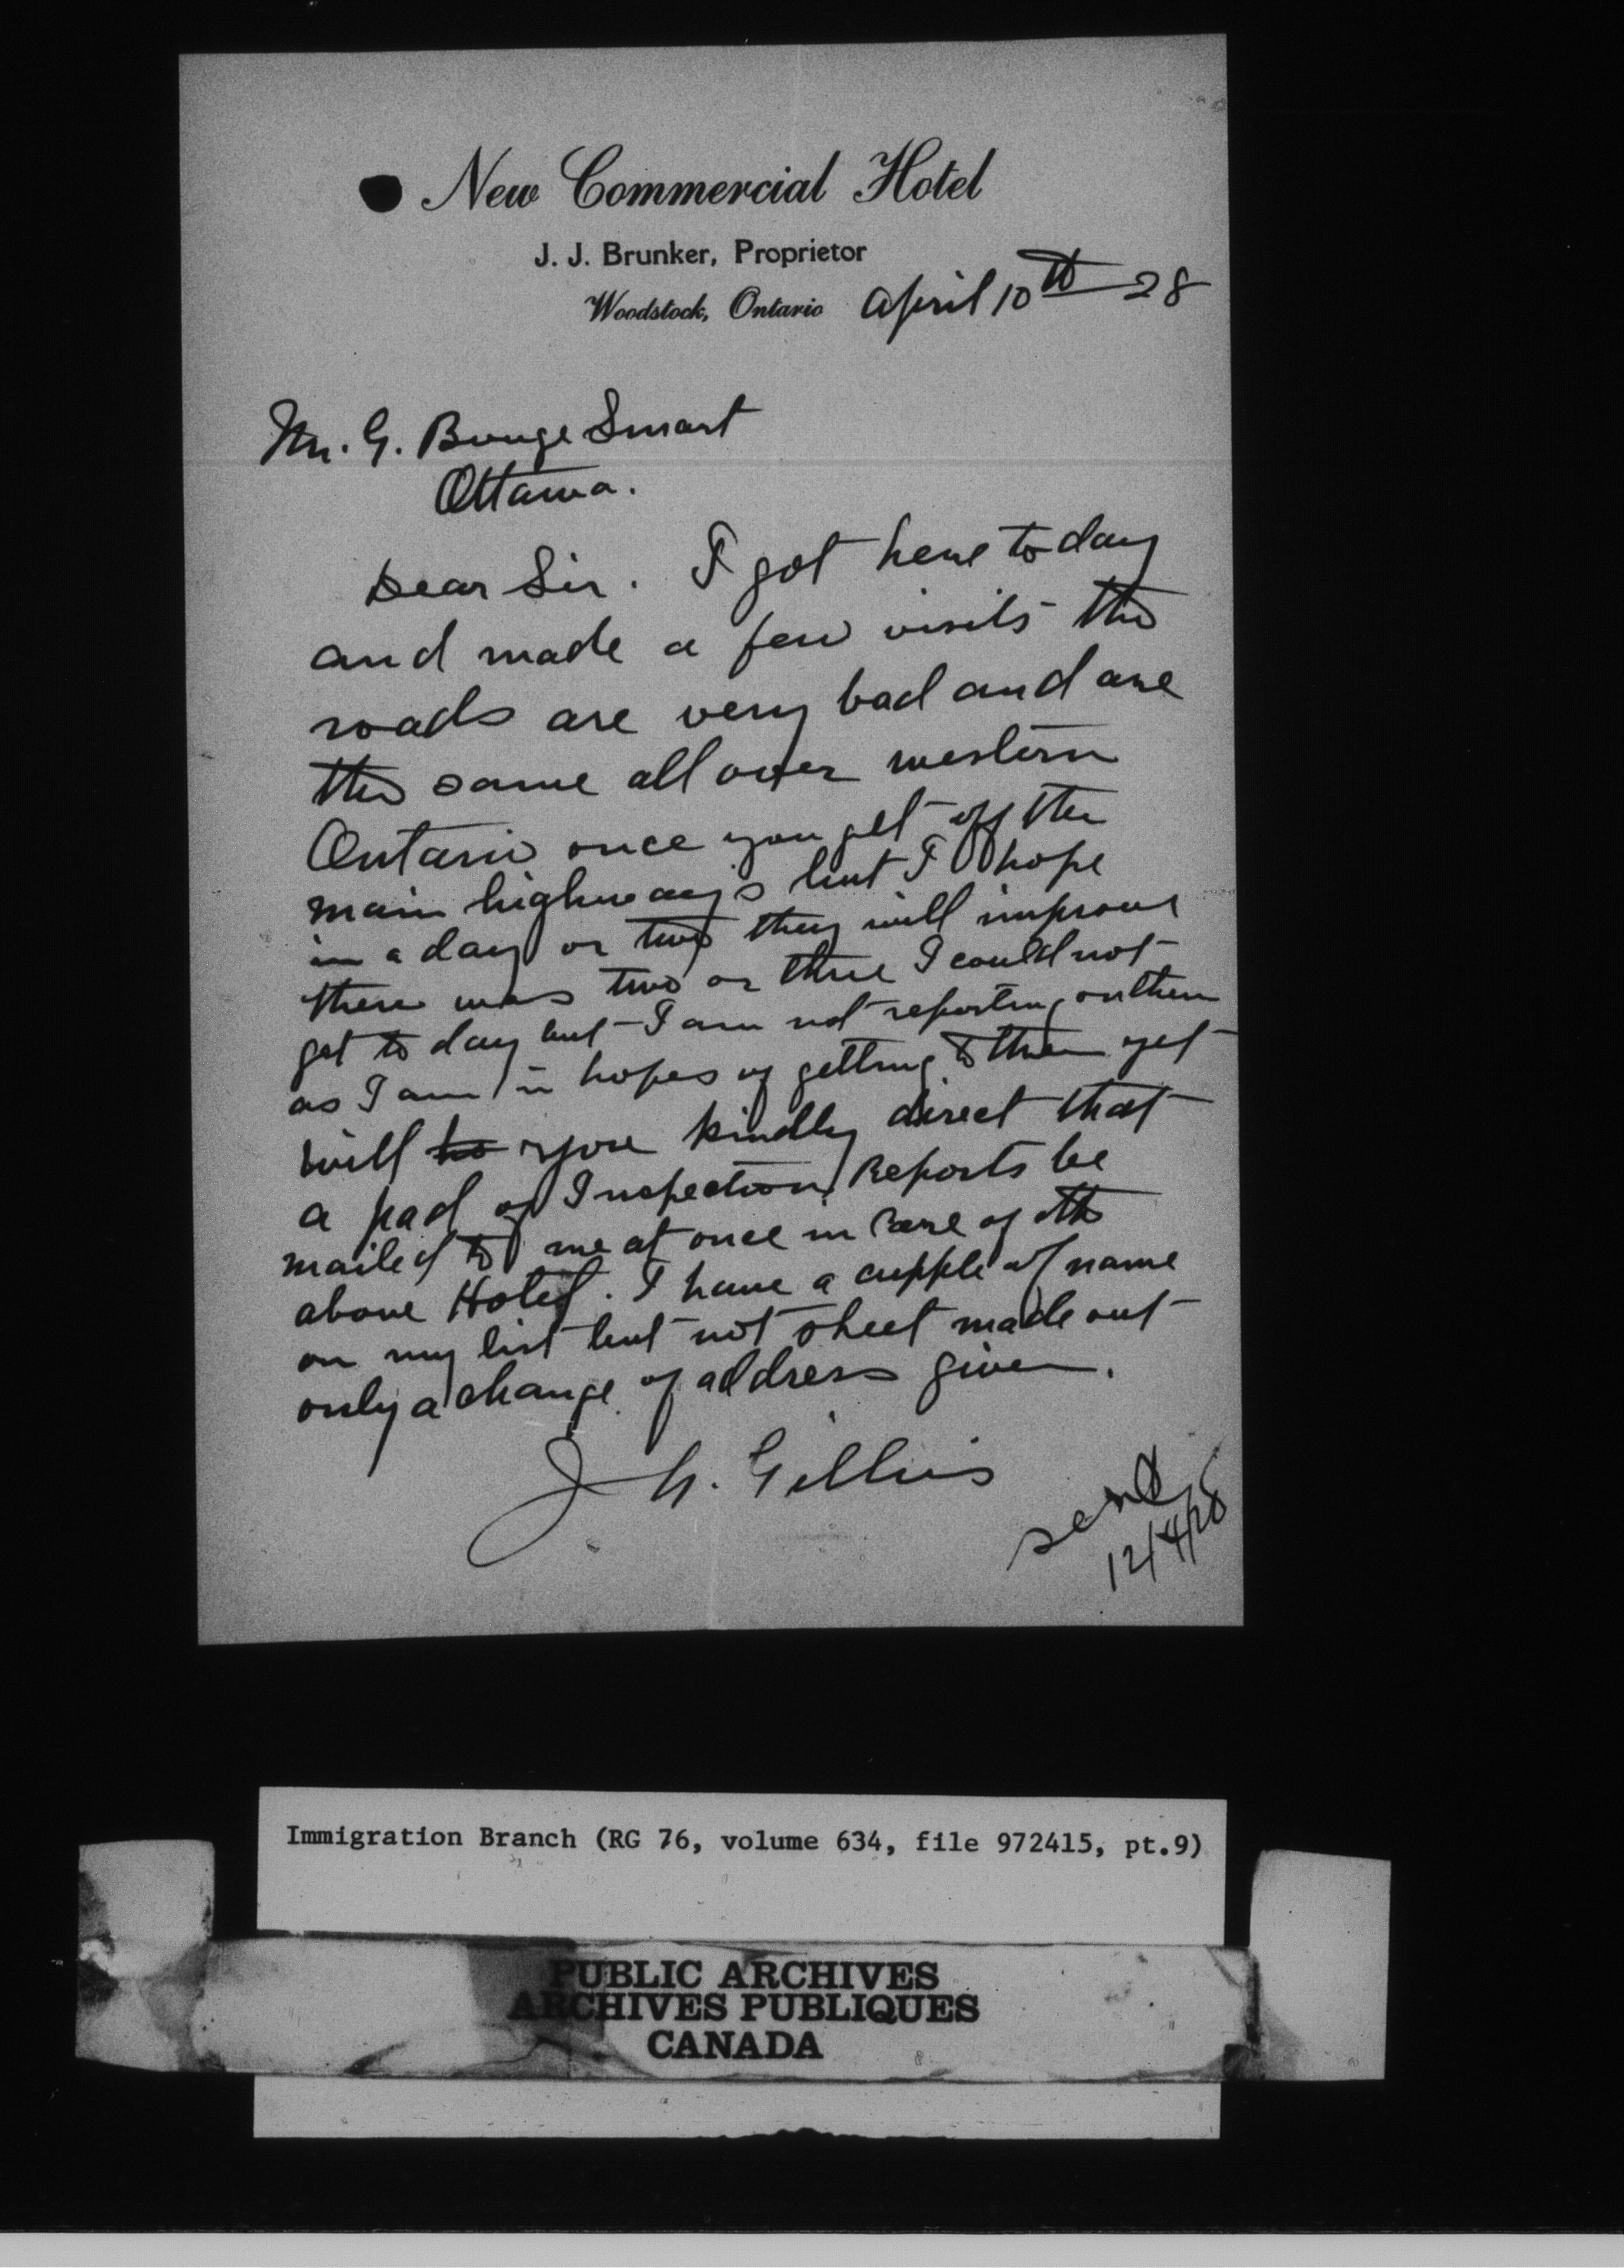 New Commercial Hotel
J. J. Brunker, Proprietor
Woodstock, Ontario April 10th 28
Mr. G. Bouge Smart
Ottawa.
Dear Sir. I got here to day
and made a few visits the
roads are very bad and are
the same all over western
Ontario once you get off the
main highways but I hope
in a day or two they will improve
there was two or three I could not
get to day but I am not reporting on them
as I am in hopes of getting to them yet
will you kindly direct that
a pad of Inspection Reports be
mailed to me at once in care of the
above Hotel. I have a cupple of name
on my list but not sheet made out
only a change of address given.
J. Gillies
sent
12/4/28
Immigration Branch (RG 76, volume 634, file 972415, pt.9)
PUBLIC ARCHIVES
ARCHIVES PUBLIQUES
CANADA